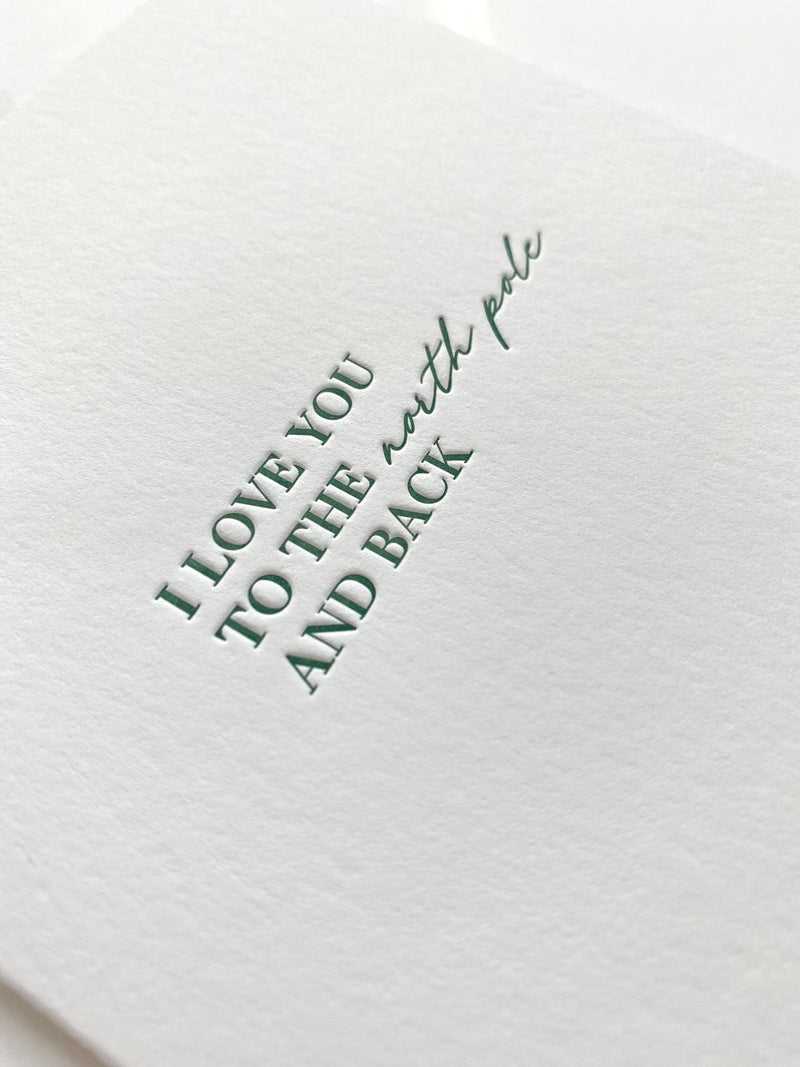 I LOVE YOU
TO THE north pole
AND BACK